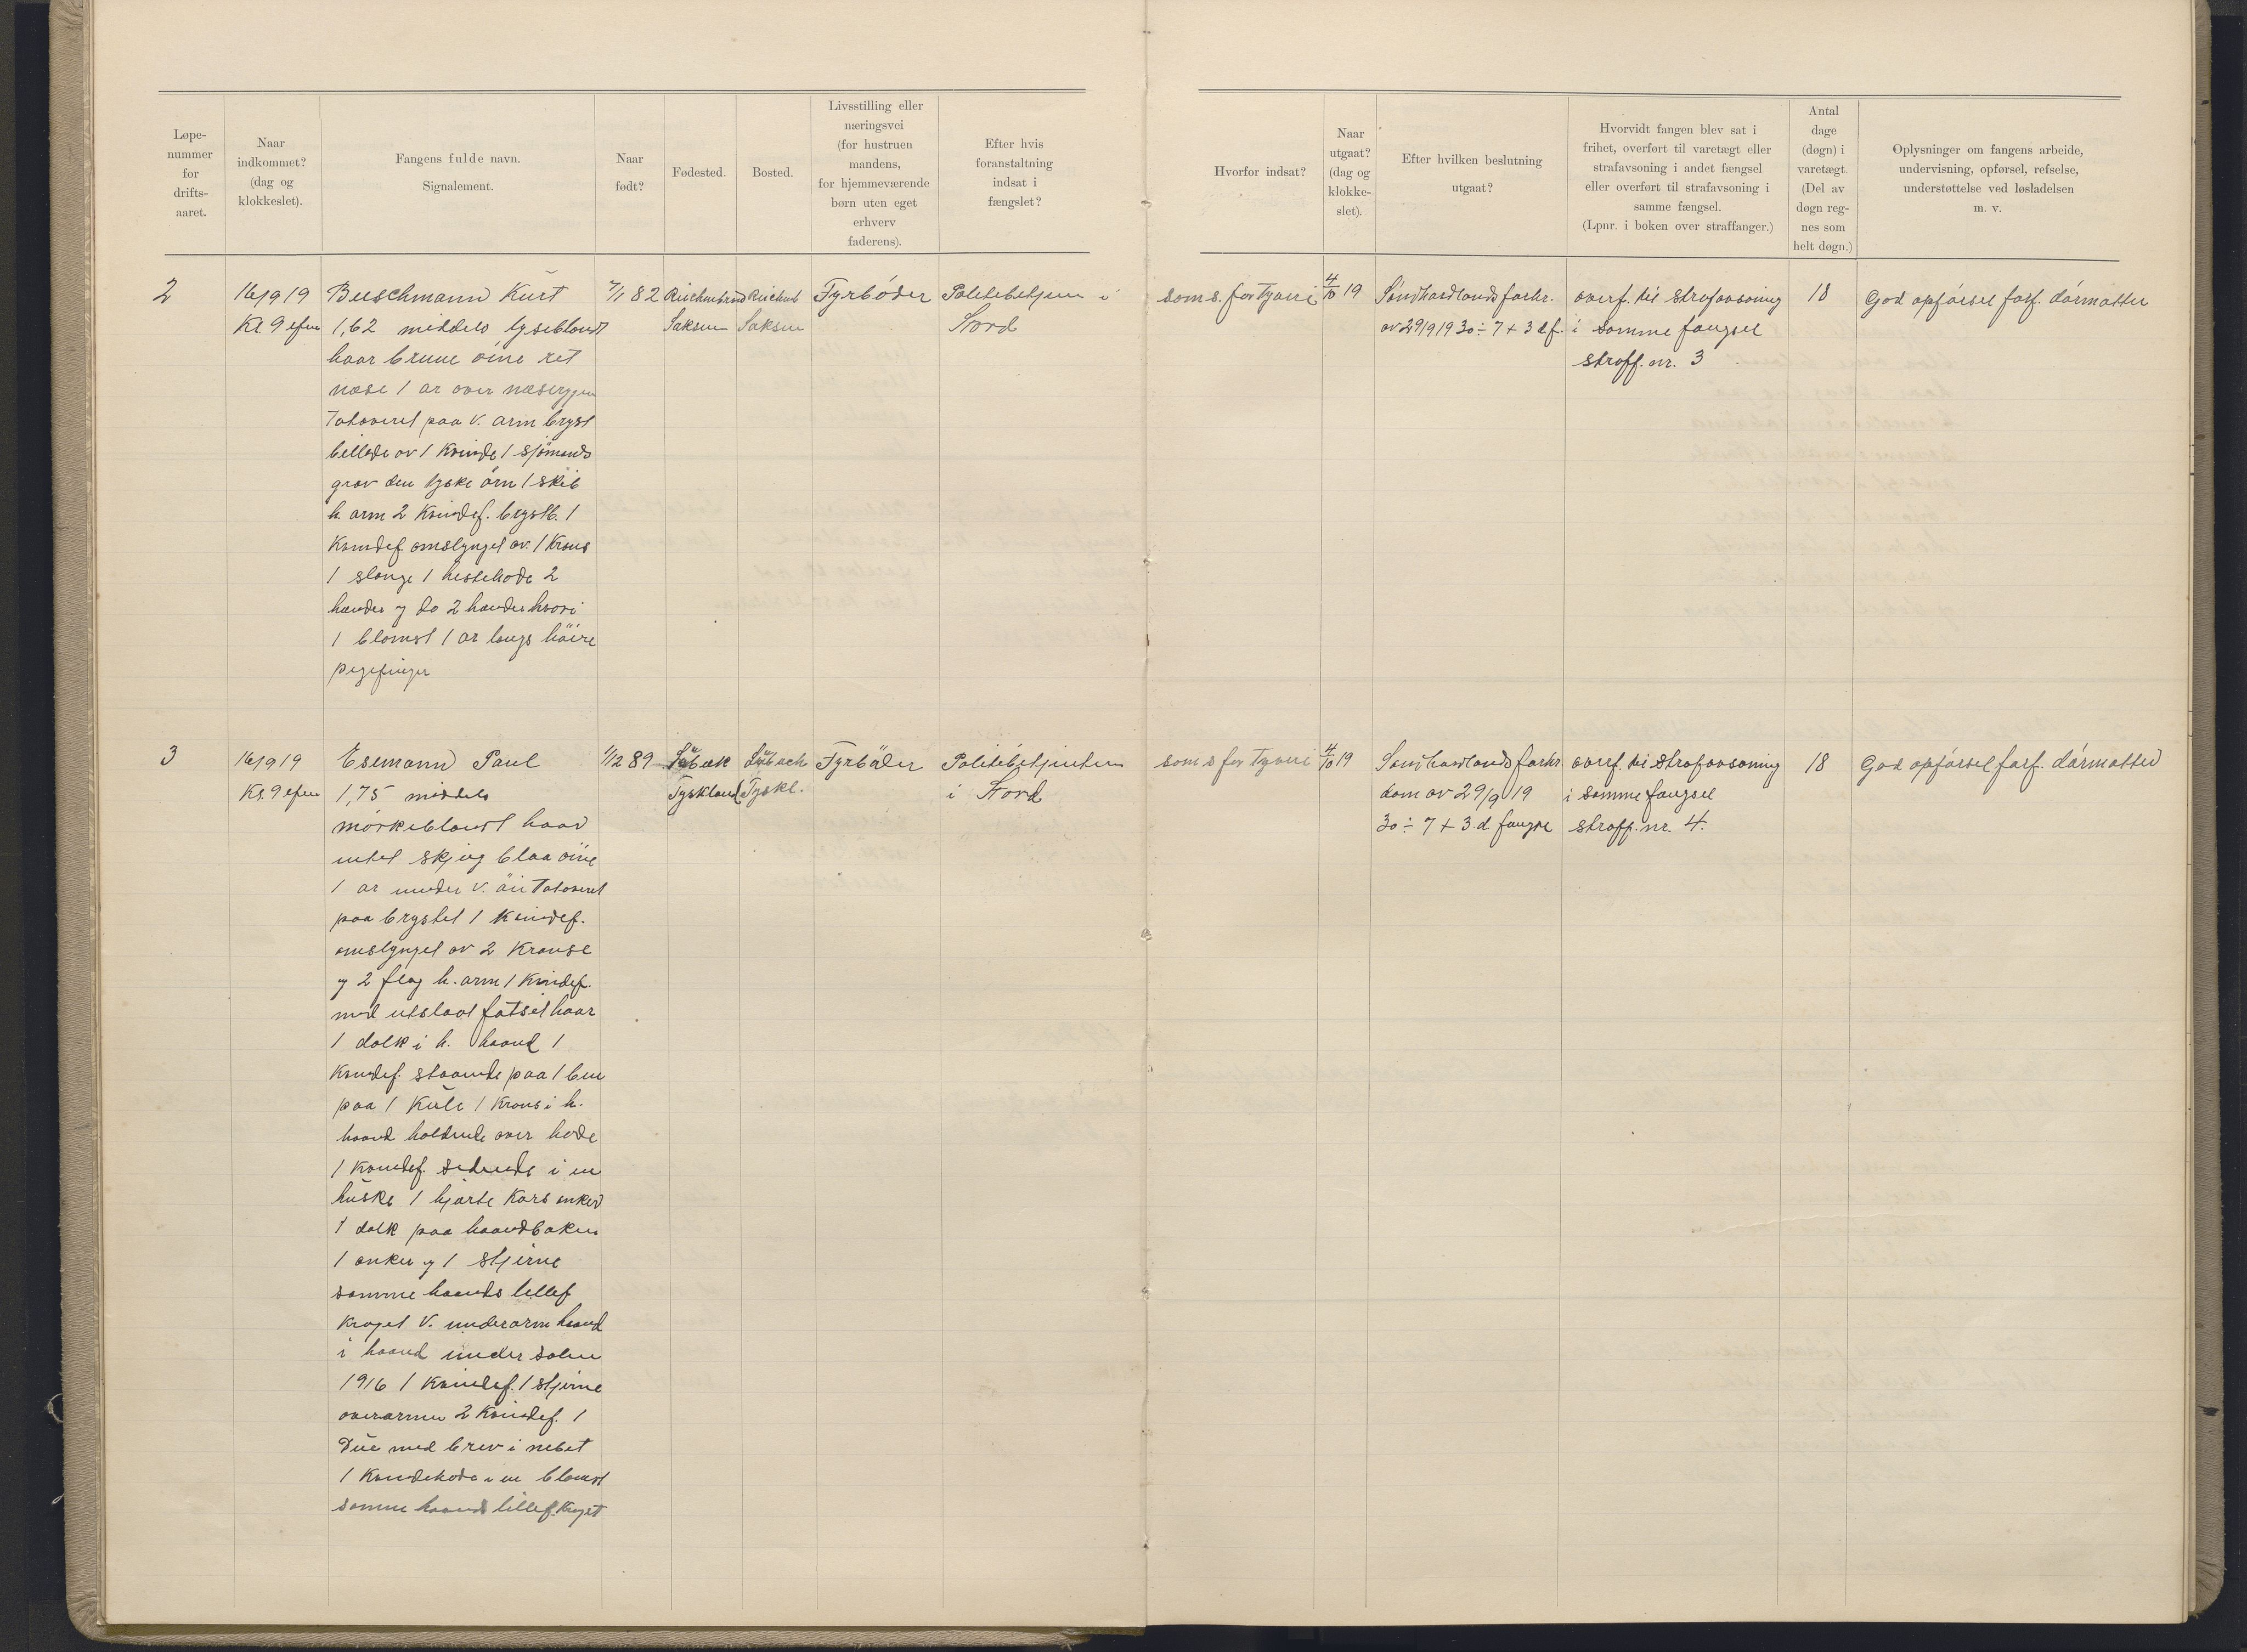 Løpe-
nummer
for
drifts-
aaret.
Naar
indkommet?
(dag og
klokkeslet).
Fangens fulde navn.
Signalement.
Naar
født?
Fødested.
Bosted.
Livsstilling eller
næringsvei
(for hustruen
mandens,
for hjemmeværende
børn uten eget
erhverv
faderens).
Efter hvis
foranstaltning
indsat i
fængslet?
Hvorfor indsat?
Naar
utgaat?
(dag og
klokke-
slet).
Efter hvilken beslutning
utgaat?
Hvorvidt fangen blev sat i
frihet, overført til varetægt eller
strafavsoning i andet fængsel
eller overført til strafavsoning i
samme fængsel.
(Lpnr. i boken over straffanger.)
Antal
dage
(døgn) i
varetægt
(Del av
døgn reg-
nes som
helt døgn.)
Oplysninger om fangens arbeide,
undervisning, opførsel, refselse,
understøttelse ved løsladelsen
m. v.
2
16/9 19
Kl. 9 efm
Buschmann Kurt
1,62 middels lyseblondt
haar brune öine ret
næse 1 ar over næseryggen
Tatoveret paa v. arm bryst
billede av 1 Kvinde 1 sjömands
grav den tyske örn 1 skib
h. arm 2 Kvindef. brystb. 1
Kvindef omslynget av 1 Krans
1 slange 1 hestehode 2
hænder og do 2 hænder hvori
1 blomst 1 ar langs höire
pegefinger
7/1 82
Saksen
Saksen
Fyrböder
Politibetjenten i
Stord
som s. for tyveri
4/10 19
Söndhordlands forhr.
av 29/9 19 30 ÷ 7 + 3 d. f.
overf. til strafavsoning
i samme fængsel
straff. nr. 3
18
God opförsel forf. dörmatter
3
16/9 19
Kl. 9 efm
Esemann Paul
1,75 middels
mörkeblondt haar
intet skjeg blaa öine
1 ar under v. öie Tatoveret
paa brystet 1 Kvindef.
omslynget av 2 Kranse
og 2 flag h. arm 1 Kvindef.
med utslaat haar
1 dolk i h. haand 1
Kvindef. staaende paa 1 ben
paa 1 Kule 1 Krans i h.
haand holdende over hode
1 Kvindef. sidende i en
huske 1 hjerte Kors anker
1 dolk paa haandbaken
1 anker og 1 stjerne
samme haands lillef
Kroget V. underarm haand
i haand under solen
1916 1 Kvindef. 1 stjerne
overarmen 2 Kvindef. 1
Due med brev i nebet
1 Kvindehode i en blomst
samme haands lillef. Kroget
1/12 89
Lübæk
Tyskland
Lübæch
Tyskl.
Fyrböder
Politibetjenten
i Stord
som s for tyveri
4/10 19
Söndhordlands forhr
dom av 29/9 19
30 ÷ 7 + 3 d fængsel
overf. til strafavsoning
i samme fængsel
straff. nr. 4.
18
God opförsel forf. dörmatter